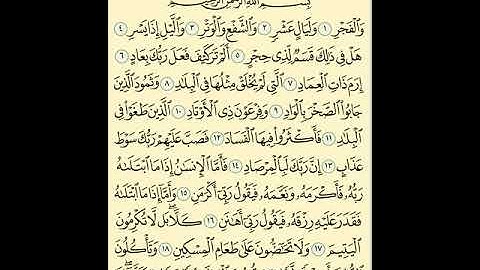 بِسْمِ اللَّهِ الرَّحْمَٰنِ الرَّحِيمِ
وَالْفَجْرِ ١ وَلَيَالٍ عَشْرٍ ٢ وَالشَّفْعِ وَالْوَتْرِ ٣ وَاللَّيْلِ إِذَا يَسْرِ ٤
هَلْ فِي ذَٰلِكَ قَسَمٌ لِّذِي حِجْرٍ ٥ أَلَمْ تَرَ كَيْفَ فَعَلَ رَبُّكَ بِعَادٍ ٦
إِرَمَ ذَاتِ الْعِمَادِ ٧ الَّتِي لَمْ يُخْلَقْ مِثْلُهَا فِي الْبِلَادِ ٨ وَثَمُودَ الَّذِينَ
جَابُوا الصَّخْرَ بِالْوَادِ ٩ وَفِرْعَوْنَ ذِي الْأَوْتَادِ ١٠ الَّذِينَ طَغَوْا فِي
الْبِلَادِ ١١ فَأَكْثَرُوا فِيهَا الْفَسَادَ ١٢ فَصَبَّ عَلَيْهِمْ رَبُّكَ سَوْطَ
عَذَابٍ ١٣ إِنَّ رَبَّكَ لَبِالْمِرْصَادِ ١٤ فَأَمَّا الْإِنسَانُ إِذَا مَا ابْتَلَاهُ
رَبُّهُ فَأَكْرَمَهُ وَنَعَّمَهُ فَيَقُولُ رَبِّي أَكْرَمَنِ ١٥ وَأَمَّا إِذَا مَا ابْتَلَاهُ
فَقَدَرَ عَلَيْهِ رِزْقَهُ فَيَقُولُ رَبِّي أَهَانَنِ ١٦ كَلَّا بَل لَّا تُكْرِمُونَ
الْيَتِيمَ ١٧ وَلَا تَحَاضُّونَ عَلَىٰ طَعَامِ الْمِسْكِينِ ١٨ وَتَأْكُلُونَ